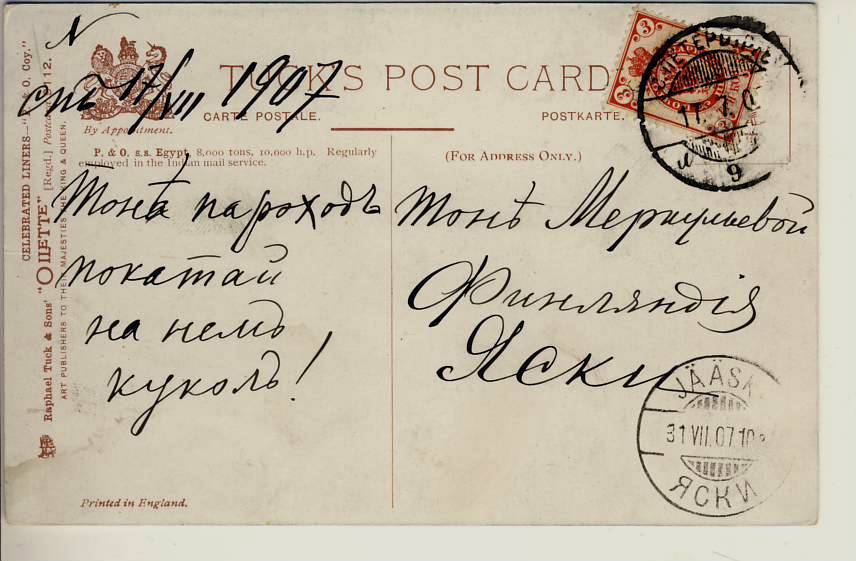 N
спб 17/VII 1907
TUCK'S POST CARD
CARTE POSTALE.
POSTKARTE.
By Appointment.
P. & O. s.s. Egypt, 8,000 tons, 10,000 h.p. Regularly
employed in the Indian mail service.
(FOR ADDRESS ONLY.)
Тонѣ пароходъ
покатай
на немъ
куколъ!
Тонѣ Меркульевой
Финляндія
Яски
3
3
17.7.0
9
JÄÄSK
31 VII.07.10
ЯСКИ
CELEBRATED LINERS—"P. & O. Coy."
Raphael Tuck & Sons' "OILETTE" [Regd.] Postcard 112.
ART PUBLISHERS TO THEIR MAJESTIES THE KING & QUEEN.
Printed in England.